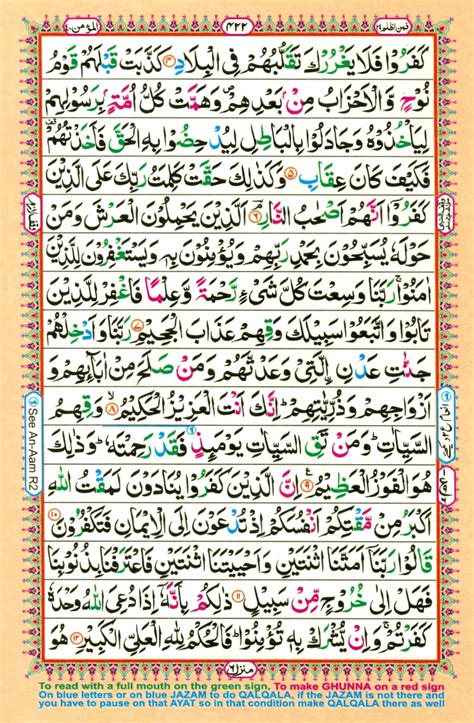 المؤمن ٤٠
٤٢٢
فمن اظلم ٢٤
كَفَرُوْا فَلَا يَغْرُرْكَ تَقَلُّبُهُمْ فِى الْبِلَادِ ۝٤ كَذَّبَتْ قَبْلَهُمْ قَوْمُ
نُوْحٍ وَّ الْاَحْزَابُ مِنْۢ بَعْدِهِمْ وَهَمَّتْ كُلُّ اُمَّةٍۭ بِرَسُوْلِهِمْ
لِيَاْخُذُوْهُ وَجَادَلُوْا بِالْبَاطِلِ لِيُدْحِضُوْا بِهِ الْحَقَّ فَاَخَذْتُهُمْ
فَكَيْفَ كَانَ عِقَابِ ۝٥ وَكَذٰلِكَ حَقَّتْ كَلِمَتُ رَبِّكَ عَلَى الَّذِيْنَ
كَفَرُوْٓا اَنَّهُمْ اَصْحٰبُ النَّارِ ۝٦ اَلَّذِيْنَ يَحْمِلُوْنَ الْعَرْشَ وَمَنْ
حَوْلَهٗ يُسَبِّحُوْنَ بِحَمْدِ رَبِّهِمْ وَيُؤْمِنُوْنَ بِهٖ وَيَسْتَغْفِرُوْنَ لِلَّذِيْنَ
اٰمَنُوْا ۚ رَبَّنَا وَسِعْتَ كُلَّ شَىْءٍ رَّحْمَةً وَّعِلْمًا فَاغْفِرْ لِلَّذِيْنَ
تَابُوْا وَاتَّبَعُوْا سَبِيْلَكَ وَقِهِمْ عَذَابَ الْجَحِيْمِ ۝٧ رَبَّنَا وَاَدْخِلْهُمْ
جَنّٰتِ عَدْنِ ࣙالَّتِىْ وَعَدْتَّهُمْ وَمَنْ صَلَحَ مِنْ اٰبَآئِهِمْ وَ
اَزْوَاجِهِمْ وَذُرِّيّٰتِهِمْ ؕ اِنَّكَ اَنْتَ الْعَزِيْزُ الْحَكِيْمُ ۝٨ وَقِهِمُ
السَّيِّاٰتِ ؕ وَمَنْ تَقِ السَّيِّاٰتِ يَوْمَئِذٍ فَقَدْ رَحِمْتَهٗ ؕ وَذٰلِكَ
هُوَ الْفَوْزُ الْعَظِيْمُ ۝٩ اِنَّ الَّذِيْنَ كَفَرُوْا يُنَادَوْنَ لَمَقْتُ اللّٰهِ
اَكْبَرُ مِنْ مَّقْتِكُمْ اَنْفُسَكُمْ اِذْ تُدْعَوْنَ اِلَى الْاِيْمَانِ فَتَكْفُرُوْنَ ۝١٠
قَالُوْا رَبَّنَآ اَمَتَّنَا اثْنَتَيْنِ وَاَحْيَيْتَنَا اثْنَتَيْنِ فَاعْتَرَفْنَا بِذُنُوْبِنَا
فَهَلْ اِلٰى خُرُوْجٍ مِّنْ سَبِيْلٍ ۝١١ ذٰلِكُمْ بِاَنَّهٗٓ اِذَا دُعِىَ اللّٰهُ وَحْدَهٗ
كَفَرْتُمْ ۚ وَاِنْ يُّشْرَكْ بِهٖ تُؤْمِنُوْا ؕ فَالْحُكْمُ لِلّٰهِ الْعَلِىِّ الْكَبِيْرِ ۝١٢ هُوَ
See An-Aam R2
منزل ٦
To read with a full mouth on the green sign, To make GHUNNA on a red sign
On blue letters or on blue JAZAM to do QALQALA, if the JAZAM is not there and
you have to pause on that AYAT so in that condition make QALQALA there as well